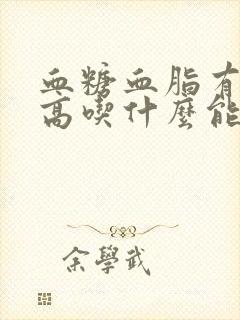 血糖血脂有
高喫什麼能
余學武